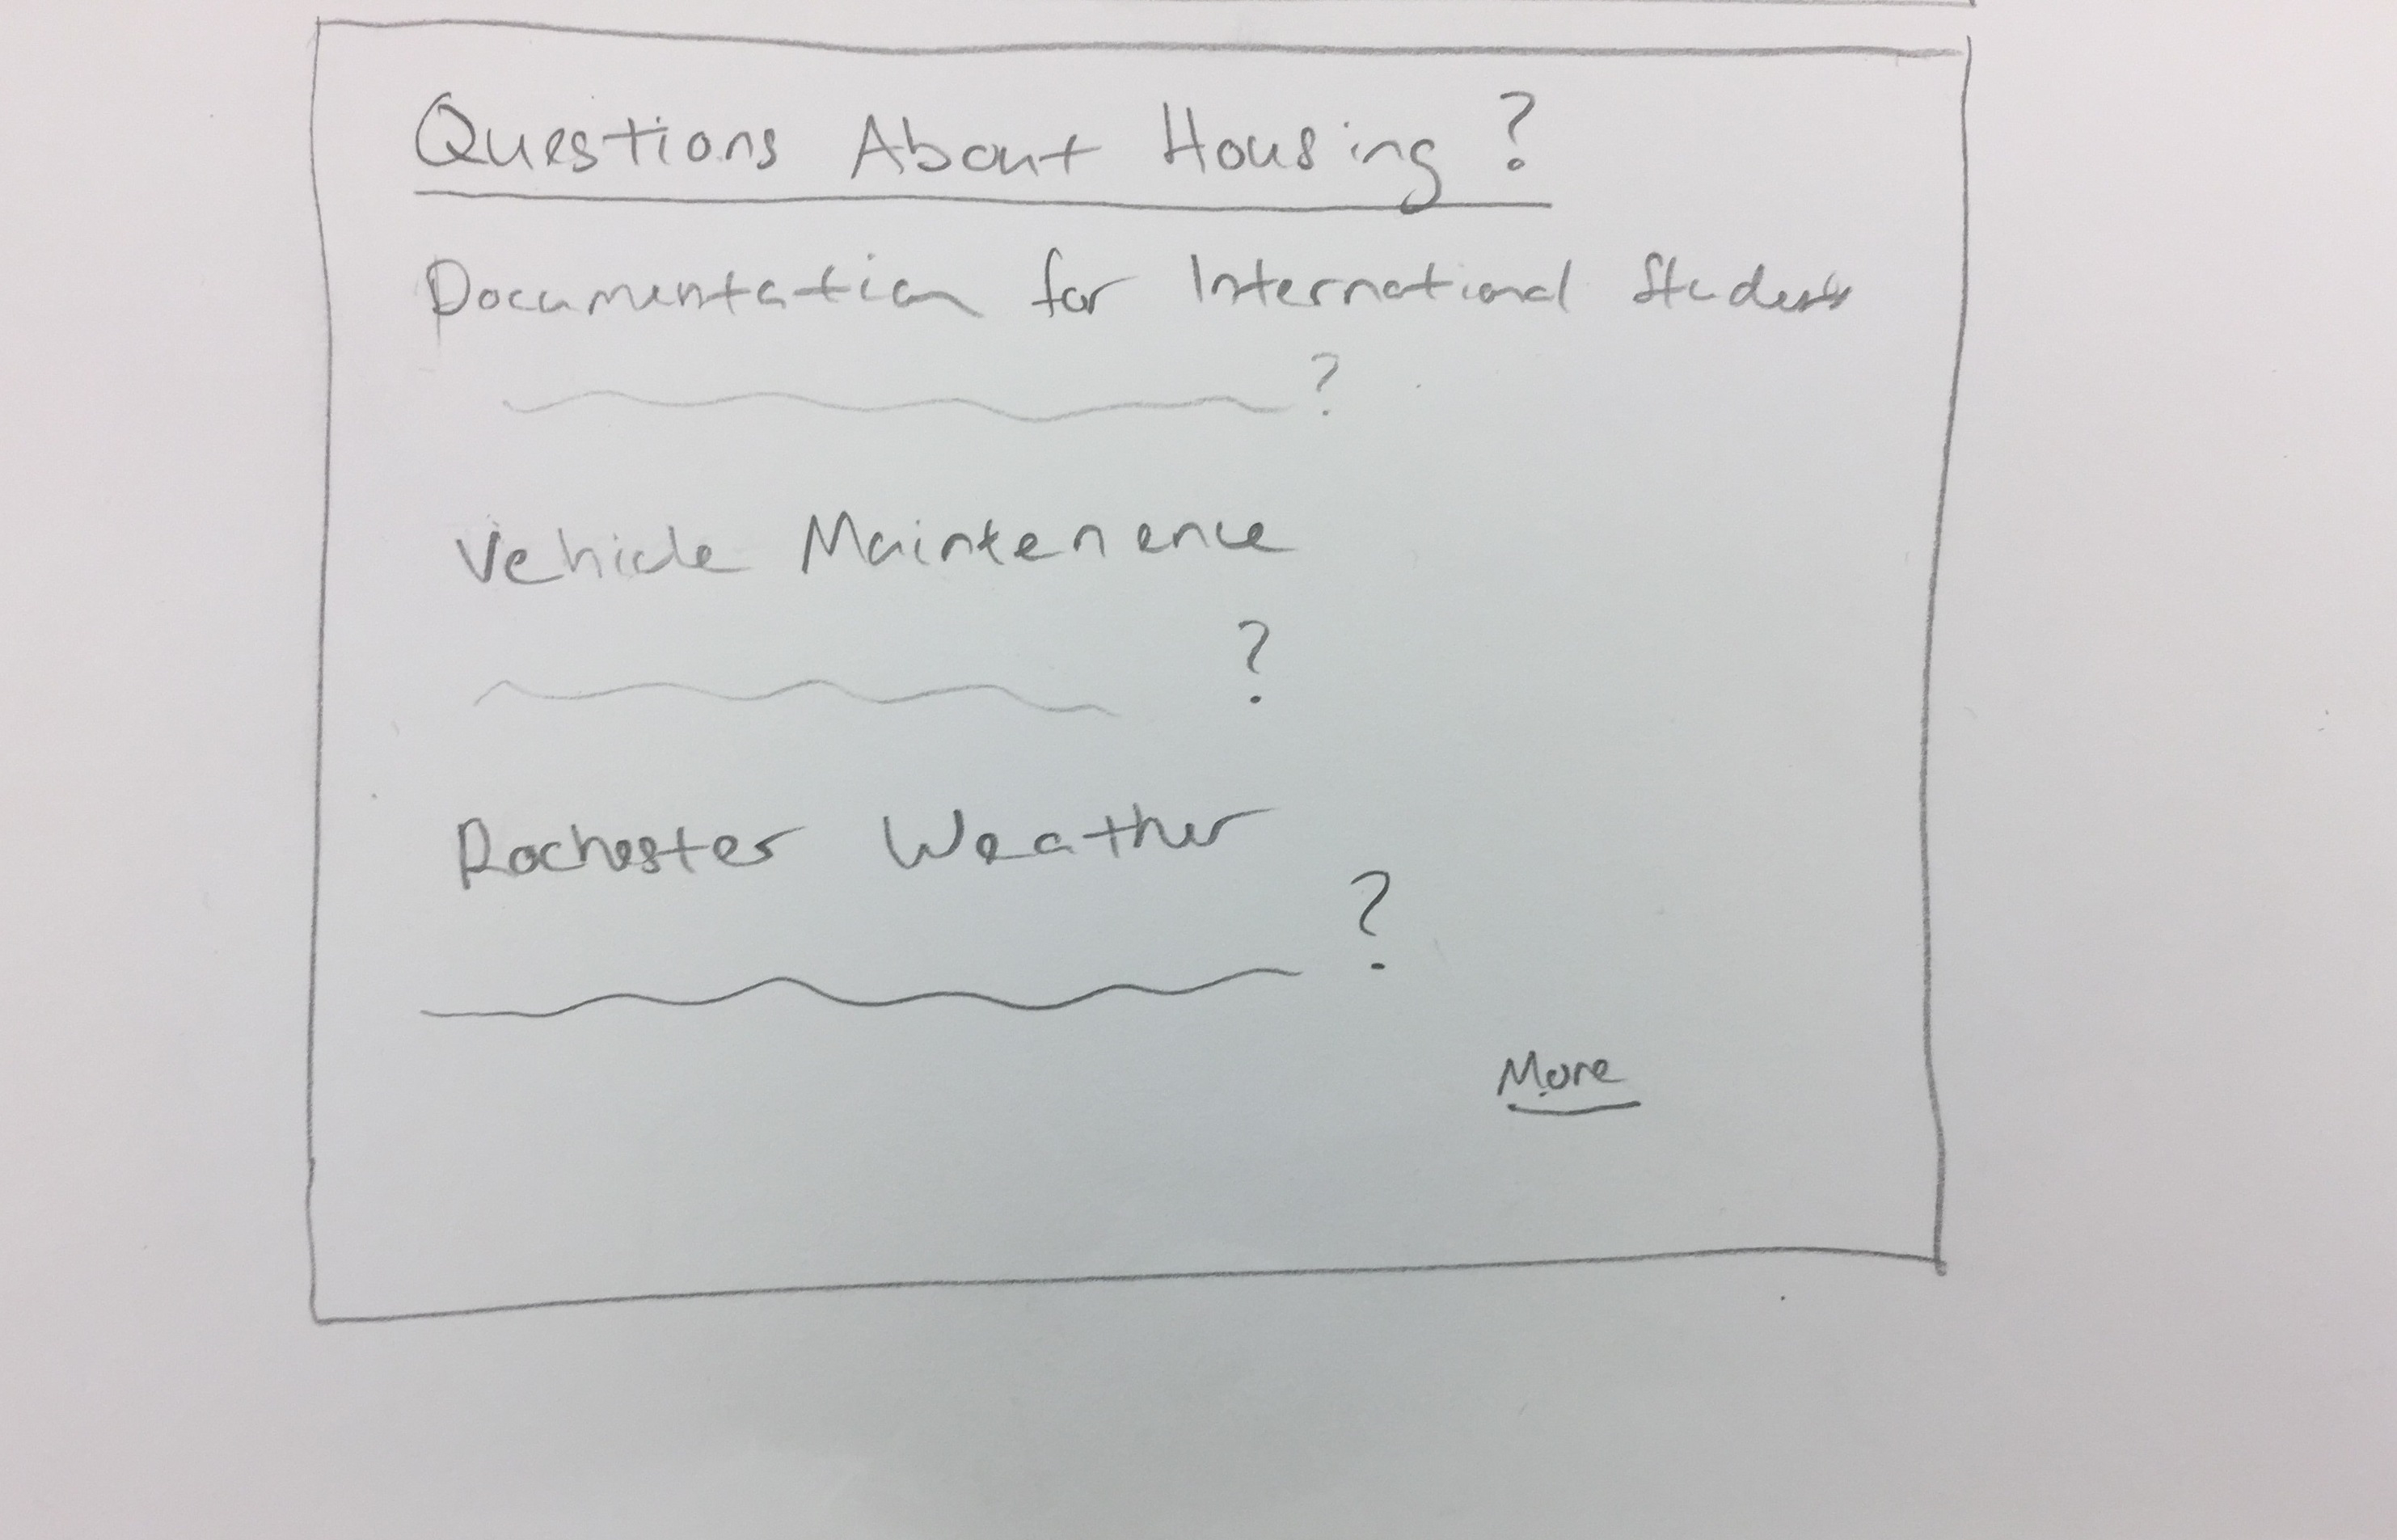 Questions About Housing ?
Documentation for International Students
?
Vehicle Maintenence
?
Rochester Weather
?
More